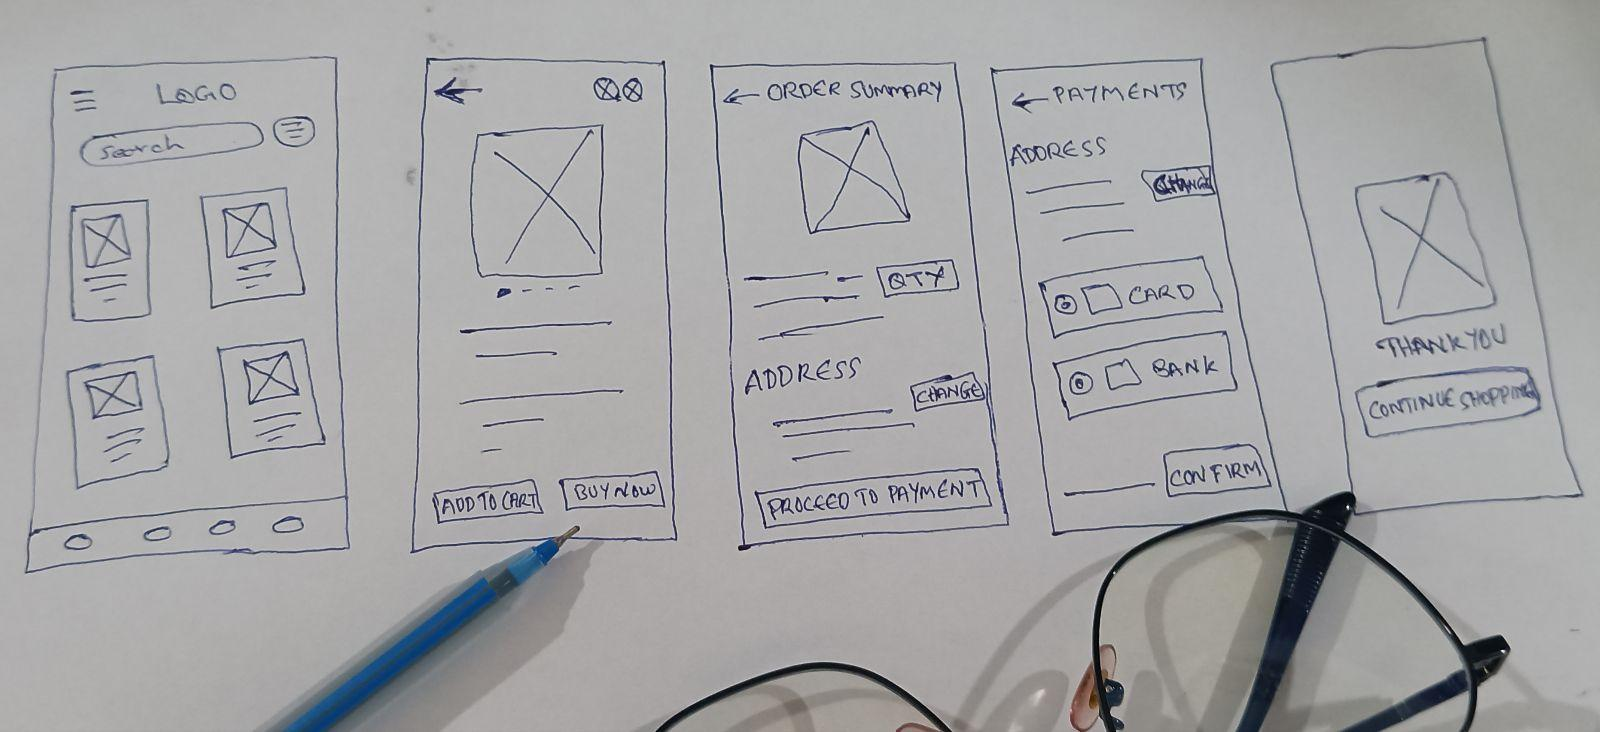 LOGO
Search
ADD TO CART
BUY NOW
ORDER SUMMARY
QTY
ADDRESS
CHANGE
PROCEED TO PAYMENT
PAYMENTS
ADDRESS
CHANGE
CARD
BANK
CONFIRM
THANK YOU
CONTINUE SHOPPING